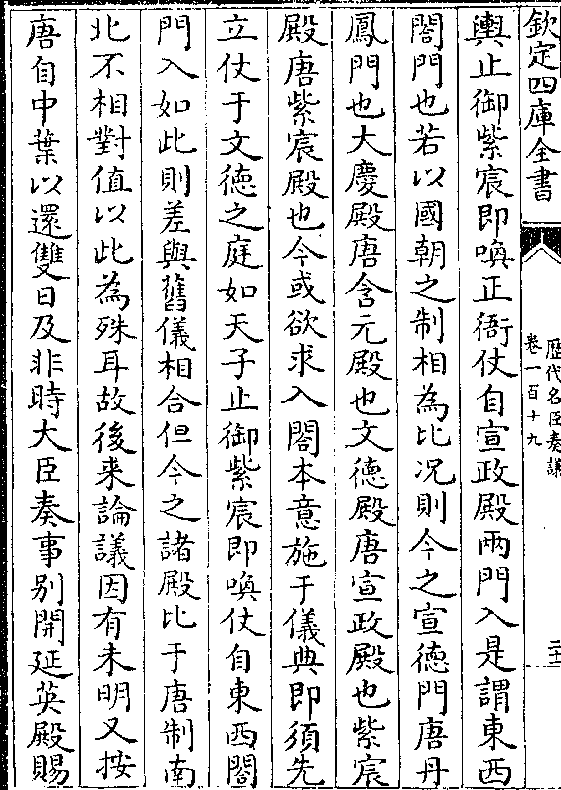 欽定四庫全書
歷代名臣奏議
卷一百十九
二十二
輿止御紫宸即喚正衙仗自宣政殿兩門入是謂東西
閤門也若以國朝之制相為比况則今之宣德門唐丹
鳳門也大慶殿唐含元殿也文德殿唐宣政殿也紫宸
殿唐紫宸殿也今或欲求入閤本意施于儀典即須先
立仗于文德之庭如天子止御紫宸即喚仗自東西閤
門入如此則差與舊儀相合但今之諸殿比于唐制南
北不相對值以此為殊耳故後来論議因有未明又按
唐自中葉以還雙日及非時大臣奏事别開延英殿賜